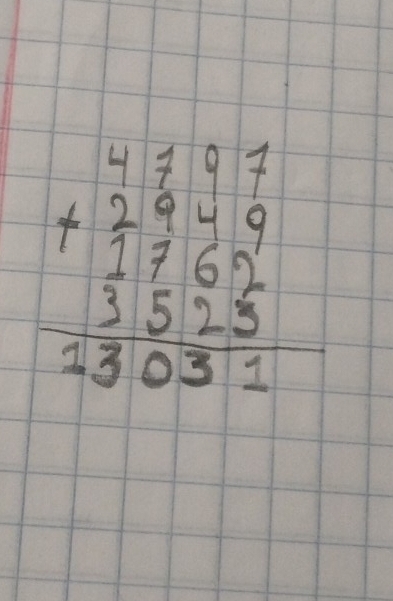 4797
+ 2949
1762
3523
13031